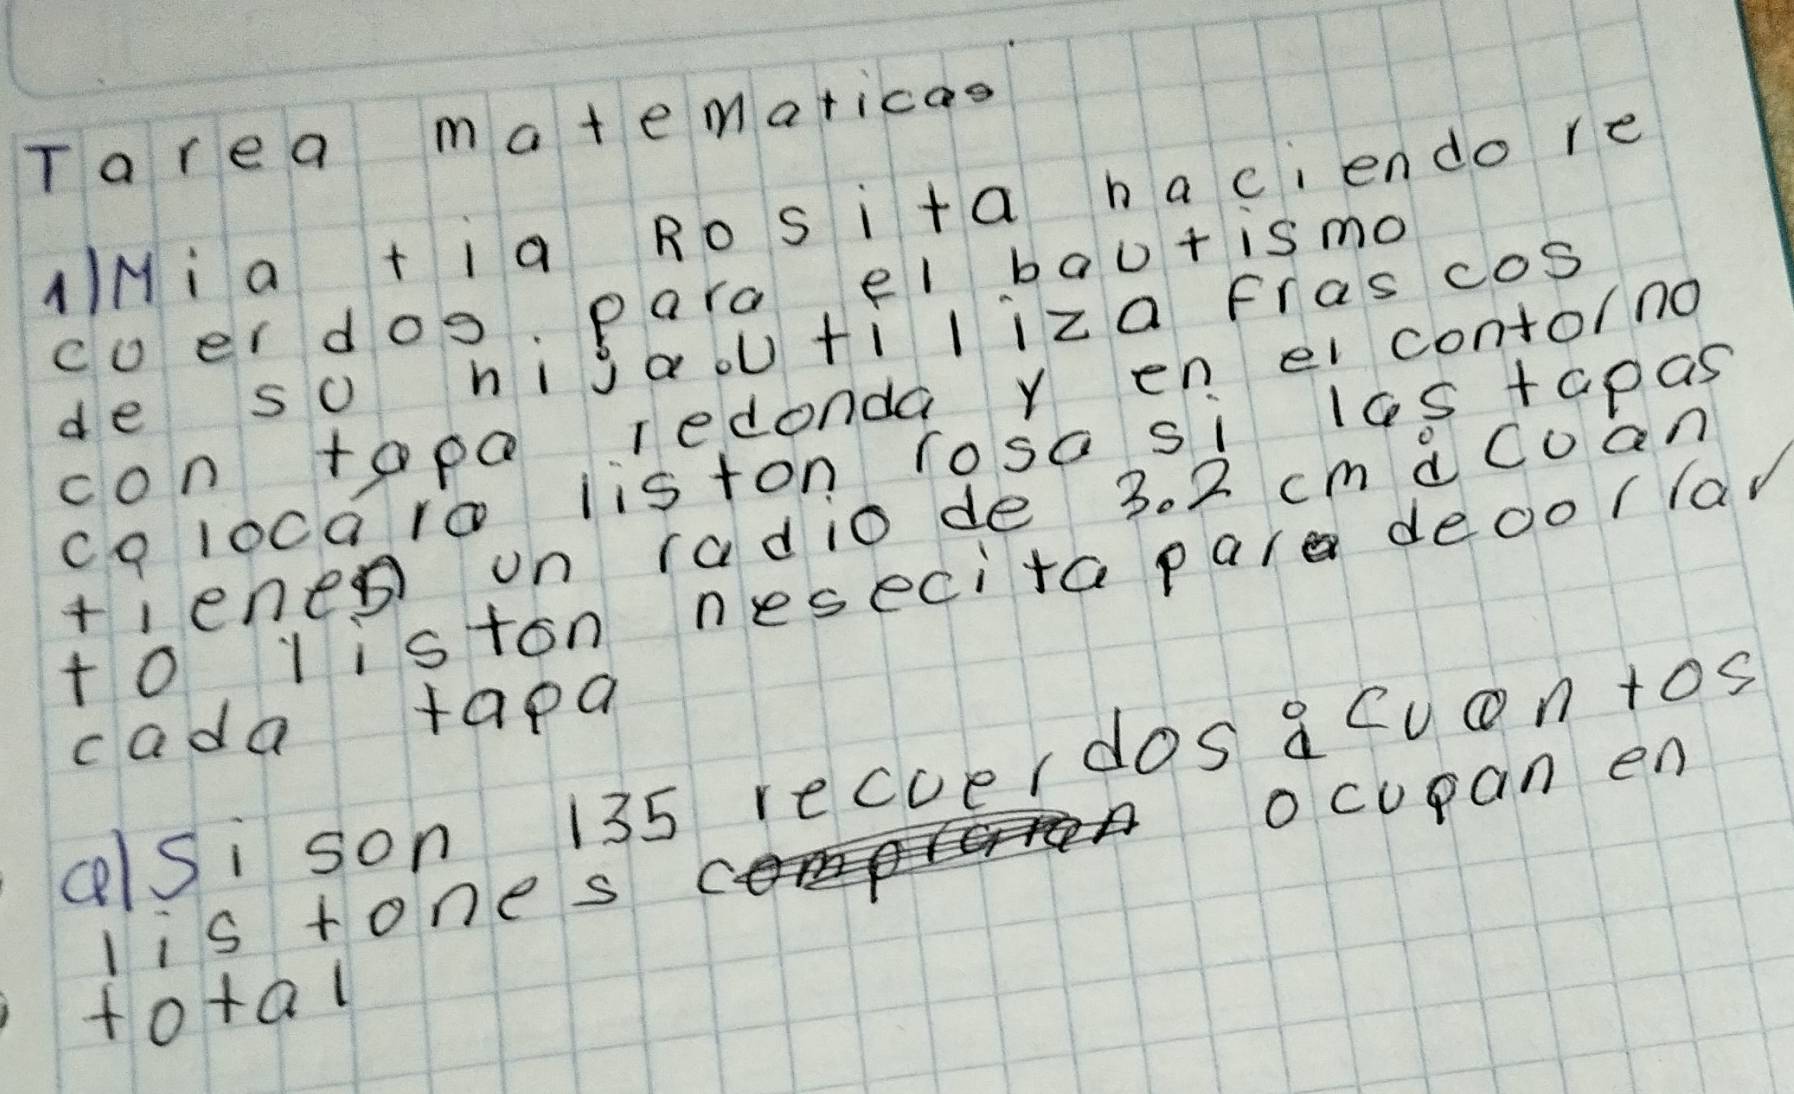 Tarea matematicas
1) Mi a tia Rosita haciendo re
cuerdos. para el bautismo
de su hija. Utiliza frascos
con tapa redonda y en el contorno
colocara liston rosa si las tapas
tienen un radio de 3.2 cm ¿Cuan
to liston nesecita para deoorrar
cada tapa
a) Si son 135 recuerdos ¿cuantos
listones ocupan en
total